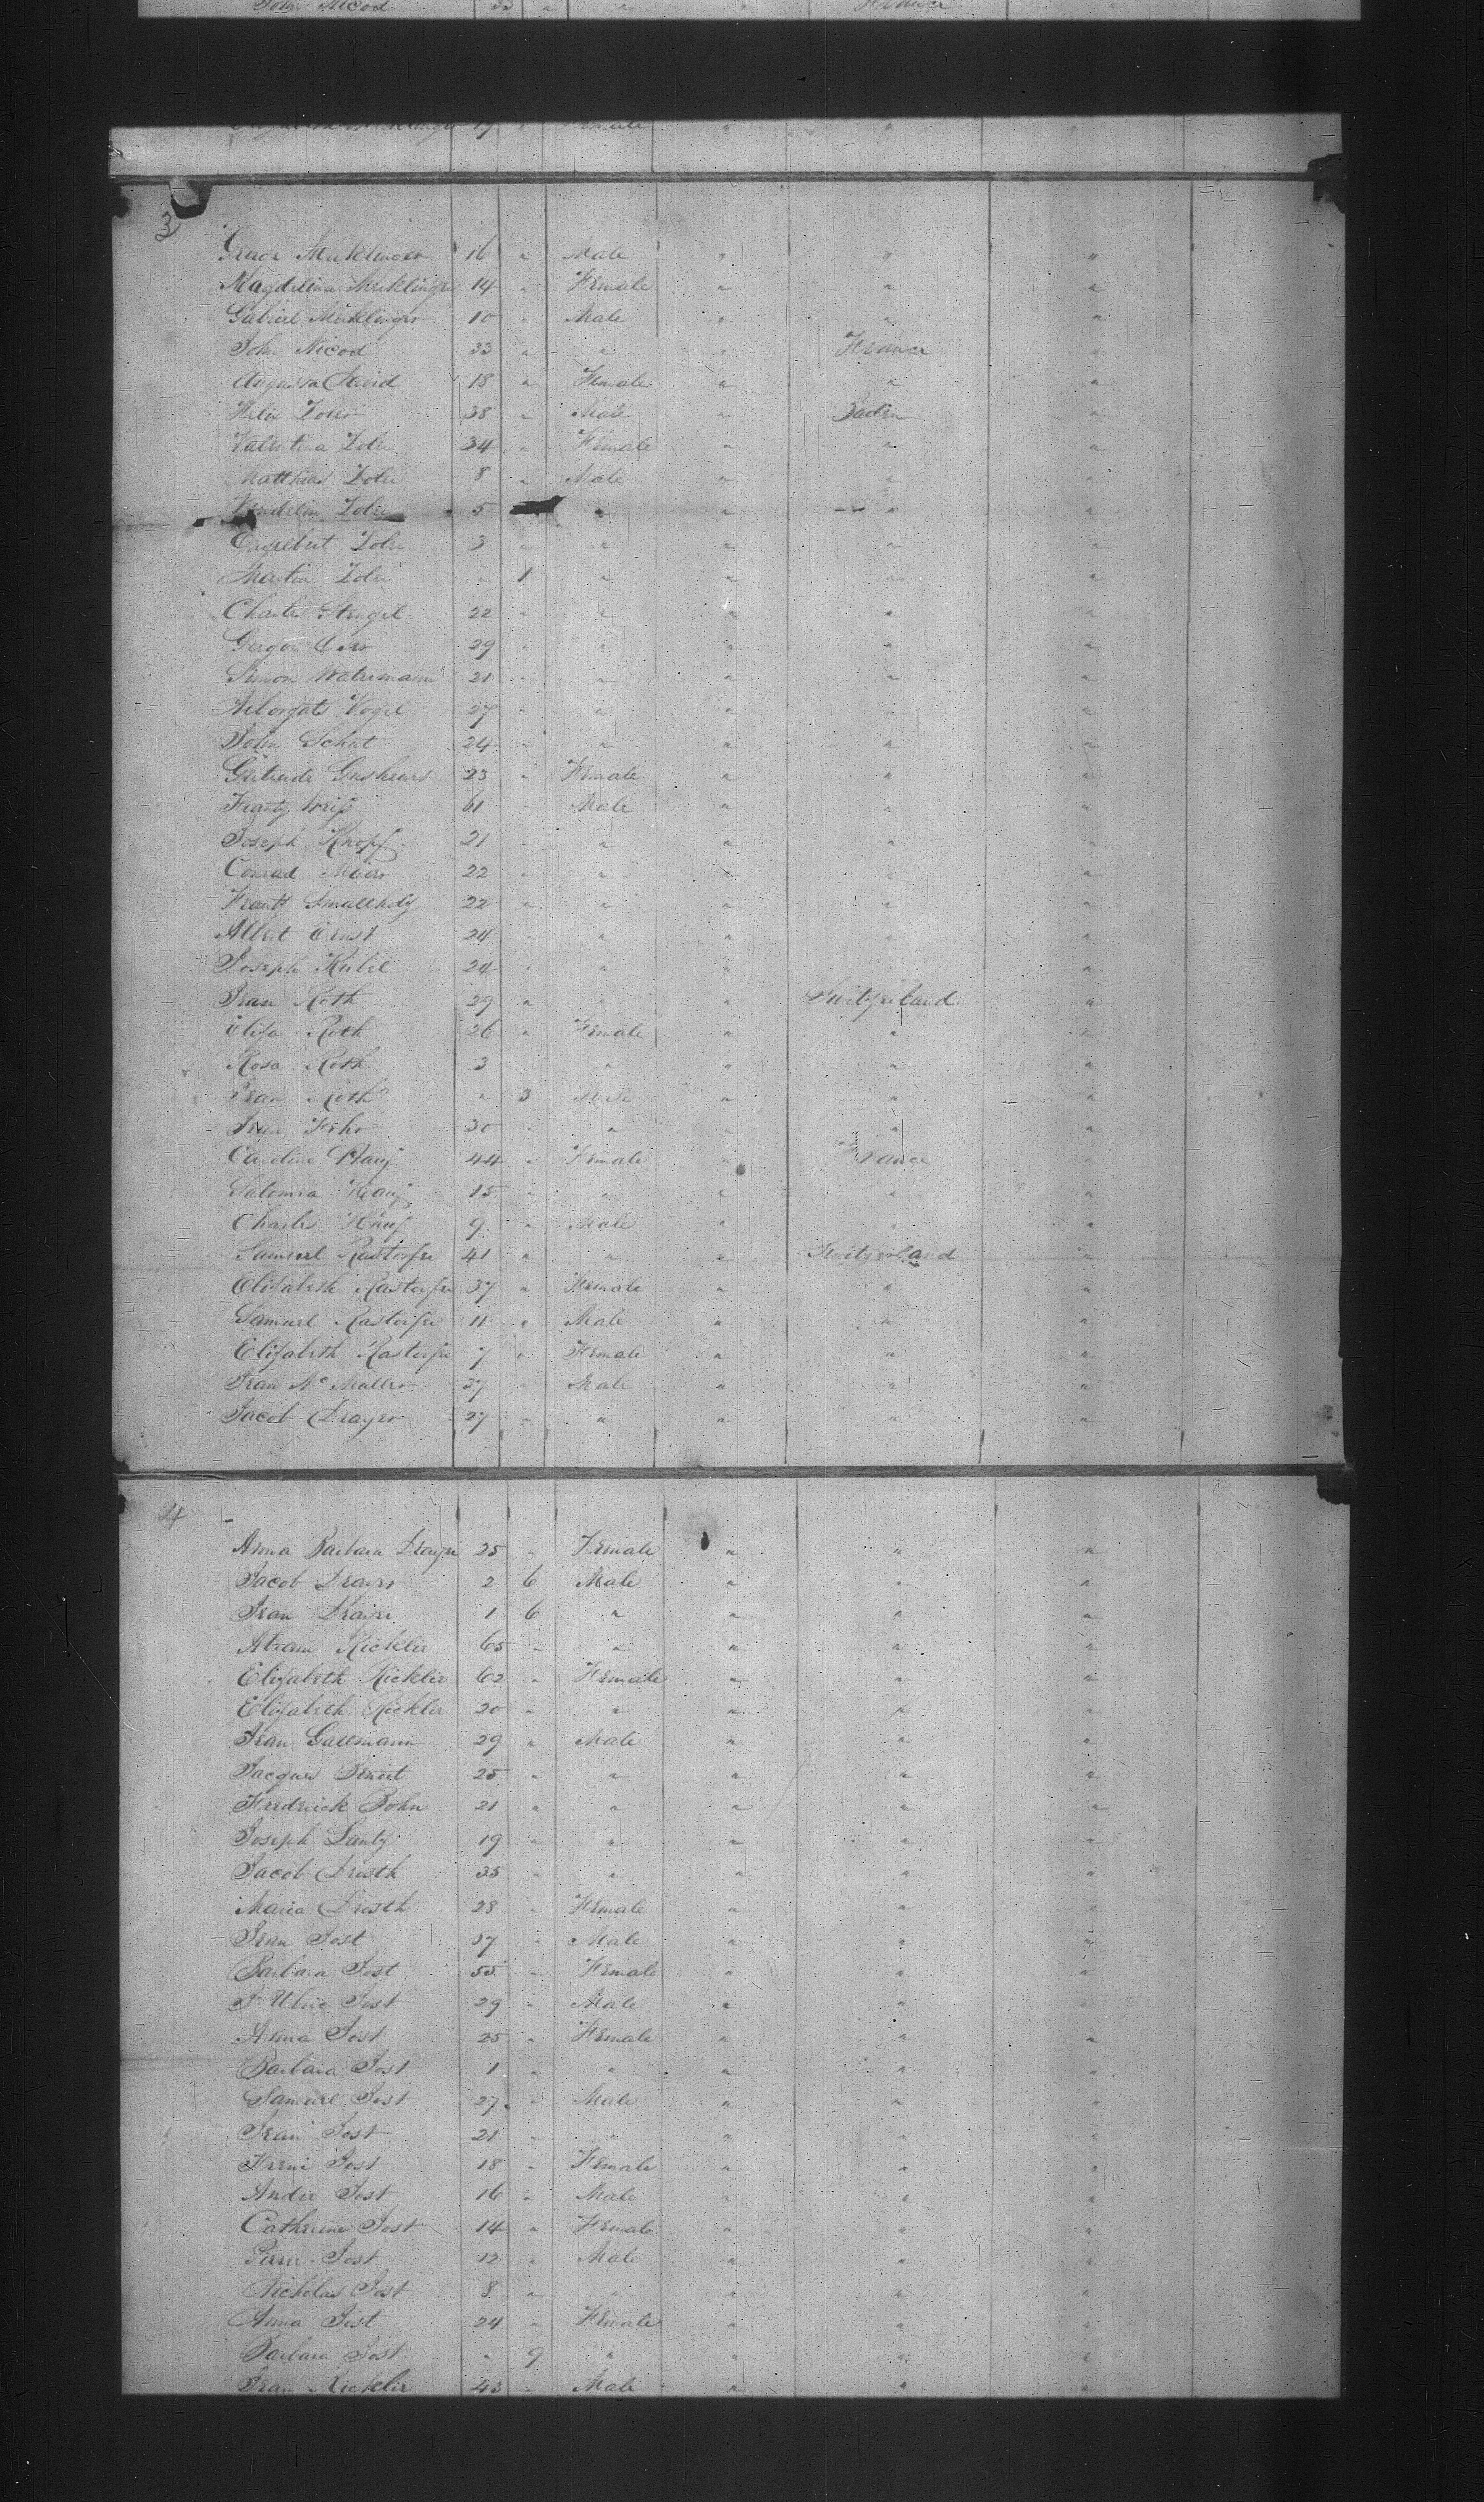 John Nicod 33 " " " France "
17 " Female " "
3
George Mecklinger 16 " Male " " "
Magdelina Mecklinger 14 " Female " " "
Gabriel Mecklinger 10 " Male " " "
John Nicod 33 " " " France "
Augusta David 18 " Female " " "
Felix Zoler 38 " Male " Baden "
Valentina Zoler 34 " Female " " "
Matthias Zoler 8 " Male " " "
Wendelin Zoler 5 " " " "
Engelbert Zoler 3 " " " " "
Martin Zoler " 1 " " " "
Charles Stengel 22 " " " " "
29 " " " " "
Simon 21 " " " " "
Arbogats Vogel 27 " " " " "
John Schut 24 " " " " "
Gertrude 23 " Female " " "
Frantz Weiss 61 " Male " " "
Joseph Knopf 21 " " " " "
Conrad Meier 22 " " " " "
Frantz Smallholz 22 " " " " "
Albert Ernst 24 " " " " "
Joseph Kubel 24 " " " "
Jean Roth 29 " " " Switzerland "
Eliza Roth 26 " Female " " "
Rosa Roth 3 " " " "
Jean Roth " 3 Male " " "
Jean 30 " " " "
Caroline 44 " Female " France "
Salomea 15 " " " " "
Charles 9 " Male " " "
Samuel Rastorfer 41 " " " Switzerland "
Elizabeth Rastorfer 37 " Female " " "
Samuel Rastorfer 11 " Male " " "
Elizabeth Rastorfer 7 " Female " " "
Jean Ns Muller 37 " Male " " "
Jacob Drayer 27 " " " " "
4
Anna Barbara Drayer 25 " Female " " "
Jacob Drayer 2 6 Male " " "
Jean Drayer 1 6 " " " "
Abram Kickler 65 " " " " "
Elizabeth Kickler 62 " Female " " "
Elizabeth Kickler 20 " " " " "
Jean Gallmann 29 " Male " " "
Jacques Benoit 25 " " " " "
Fredrick Bohn 21 " " " " "
Joseph Lantz 19 " " " " "
Jacob Drosth 35 " " " " "
Maria Drosth 28 " Female " " "
Jean Jost 57 " Male " " "
Barbara Jost 55 " Female " " "
J Ulric Jost 29 " Male " " "
Anna Jost 25 " Female " " "
Barbara Jost 1 " " " " "
Samuel Jost 27 " Male " " "
Jean Jost 21 " " " " "
Jost 18 " Female " " "
Jost 16 " Male " " "
Catherine Jost 14 " Female " " "
Pierre Jost 12 " Male " " "
Nicholas Jost 8 " " " " "
Anna Jost 24 " Female " " "
Barbara Jost " 9 " " " "
Jean Kickler 43 " Male " " "